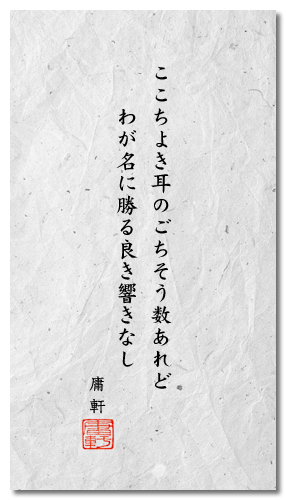 ここちよき耳のごちそう数あれど
わが名に勝る良き響きなし
庸軒